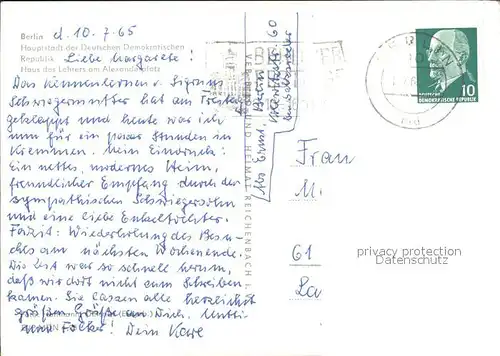 Berlin
d. 10.7.65
Hauptstadt der Deutschen Demokratischen
Republik
Liebe Margarete!
Haus des Lehrers am Alexanderplatz
Das Kennenlernen v. Sigruns
Schwiegermutter hat am Freitag
geklappt und heute war ich
nun für ein paar Stunden in
Kremmen. Mein Eindruck:
Ein nettes, modernes Heim,
freundlicher Empfang durch den
sympathischen Schwiegersohn
und eine liebe Enkeltochter.
Fazit: Wiederholung des Besu-
ches am nächsten Wochenende.
Die Zeit war so schnell herum,
daß wir dort nicht zum Schreiben
kamen. Sie lassen alle herzlichst
grüßen. Grüße an Dich, Mutti
und Falko! Dein
VEB BILD UND HEIMAT REICHENBACH I. V.
Abs. Ernst, Berlin
60
BERLIN
10
DEUTSCHE DEMOKRATISCHE REPUBLIK
Frau
M.
61
La
privacy protection
Datenschutz